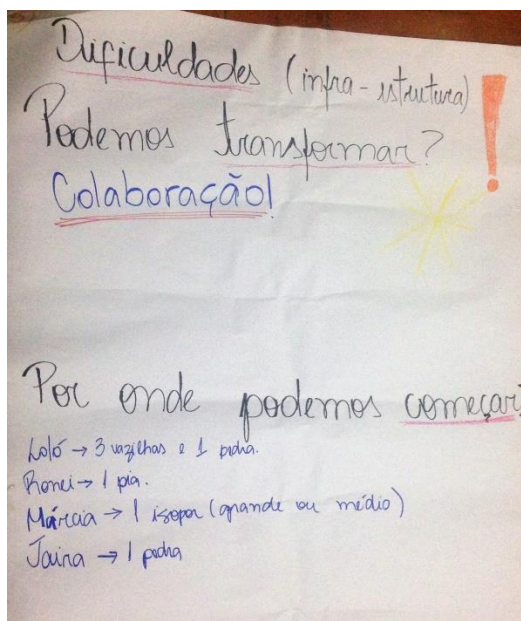 Dificuldades (infra-estrutura)
Podemos transformar?
Colaboração!
Por onde podemos começar?
Loló → 3 vazilhas e 1 pedra.
Ronei → 1 pia.
Márcia → 1 isopor (grande ou médio)
Jaira → 1 pedra